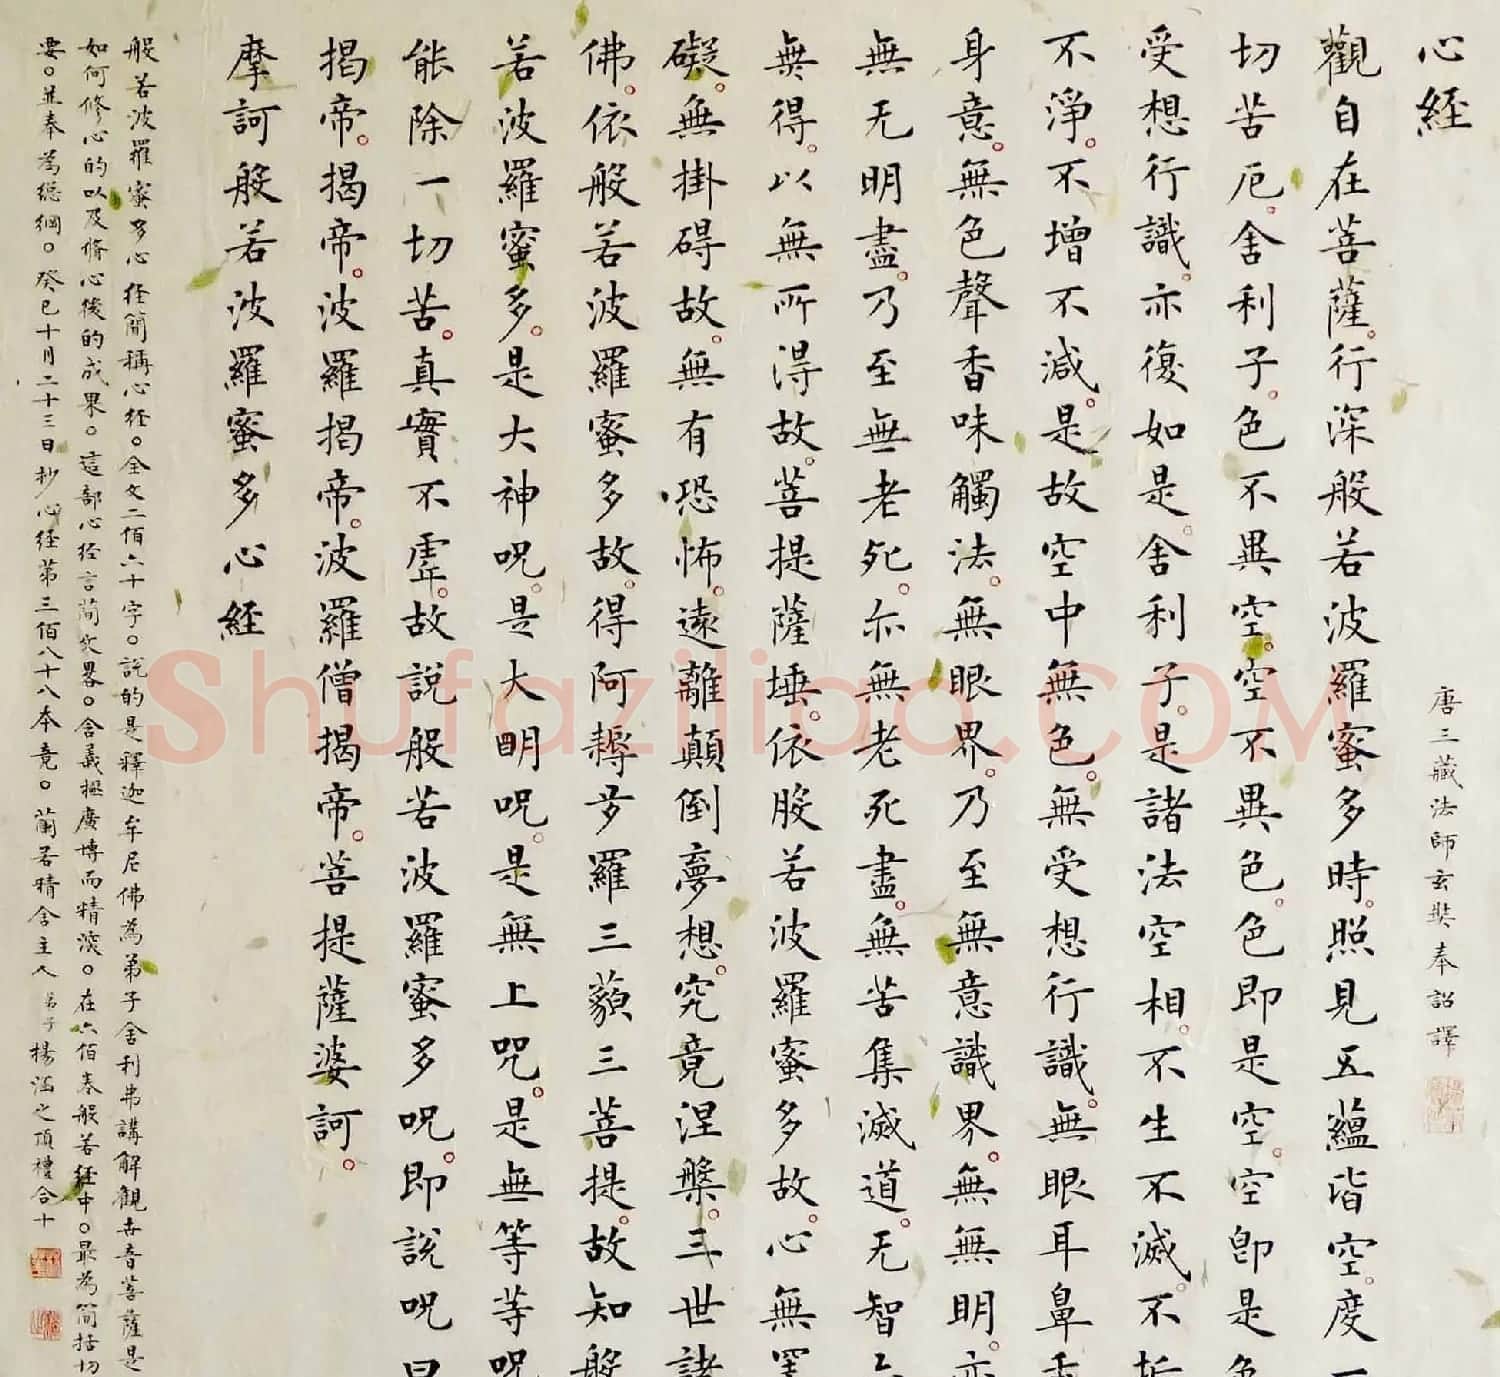 心经
唐三藏法師玄奘奉詔譯
觀自在菩薩。行深般若波羅蜜多時。照見五蘊皆空。度一
切苦厄。舍利子。色不異空。空不異色。色即是空。空即是色
受想行識。亦復如是。舍利子。是諸法空相。不生不滅。不垢
不淨。不增不減。是故空中無色。無受想行識。無眼耳鼻舌
身意。無色聲香味觸法。無眼界。乃至無意識界。無無明。亦
無无明盡。乃至無老死。亦無老死盡。無苦集滅道。无智亦
無得。以無所得故。菩提薩埵。依般若波羅蜜多故。心無罣
礙。無掛碍故。無有恐怖。遠離顛倒夢想。究竟涅槃。三世諸
佛。依般若波羅蜜多故。得阿耨多羅三藐三菩提。故知般
若波羅蜜多。是大神呪。是大明呪。是無上呪。是無等等呪
能除一切苦。真實不虛。故說般若波羅蜜多呪。即說呪曰
揭帝。揭帝。波羅揭帝。波羅僧揭帝。菩提薩婆訶。
摩訶般若波羅蜜多心経
般若波羅蜜多心经簡稱心经。全文二佰六十字。說的是釋迦牟尼佛為弟子舍利弗講解觀世音菩薩是
如何修心的以及修心後的成果。這部心经言簡文畧。含義極廣博而精深。在六佰卷般若经中。最為簡括切
要。並奉為総綱。癸巳十月二十三日抄心经第三佰八十八本竟。蘭若精舍主人弟子楊涵之頂禮合十
Shufaziliao.COM